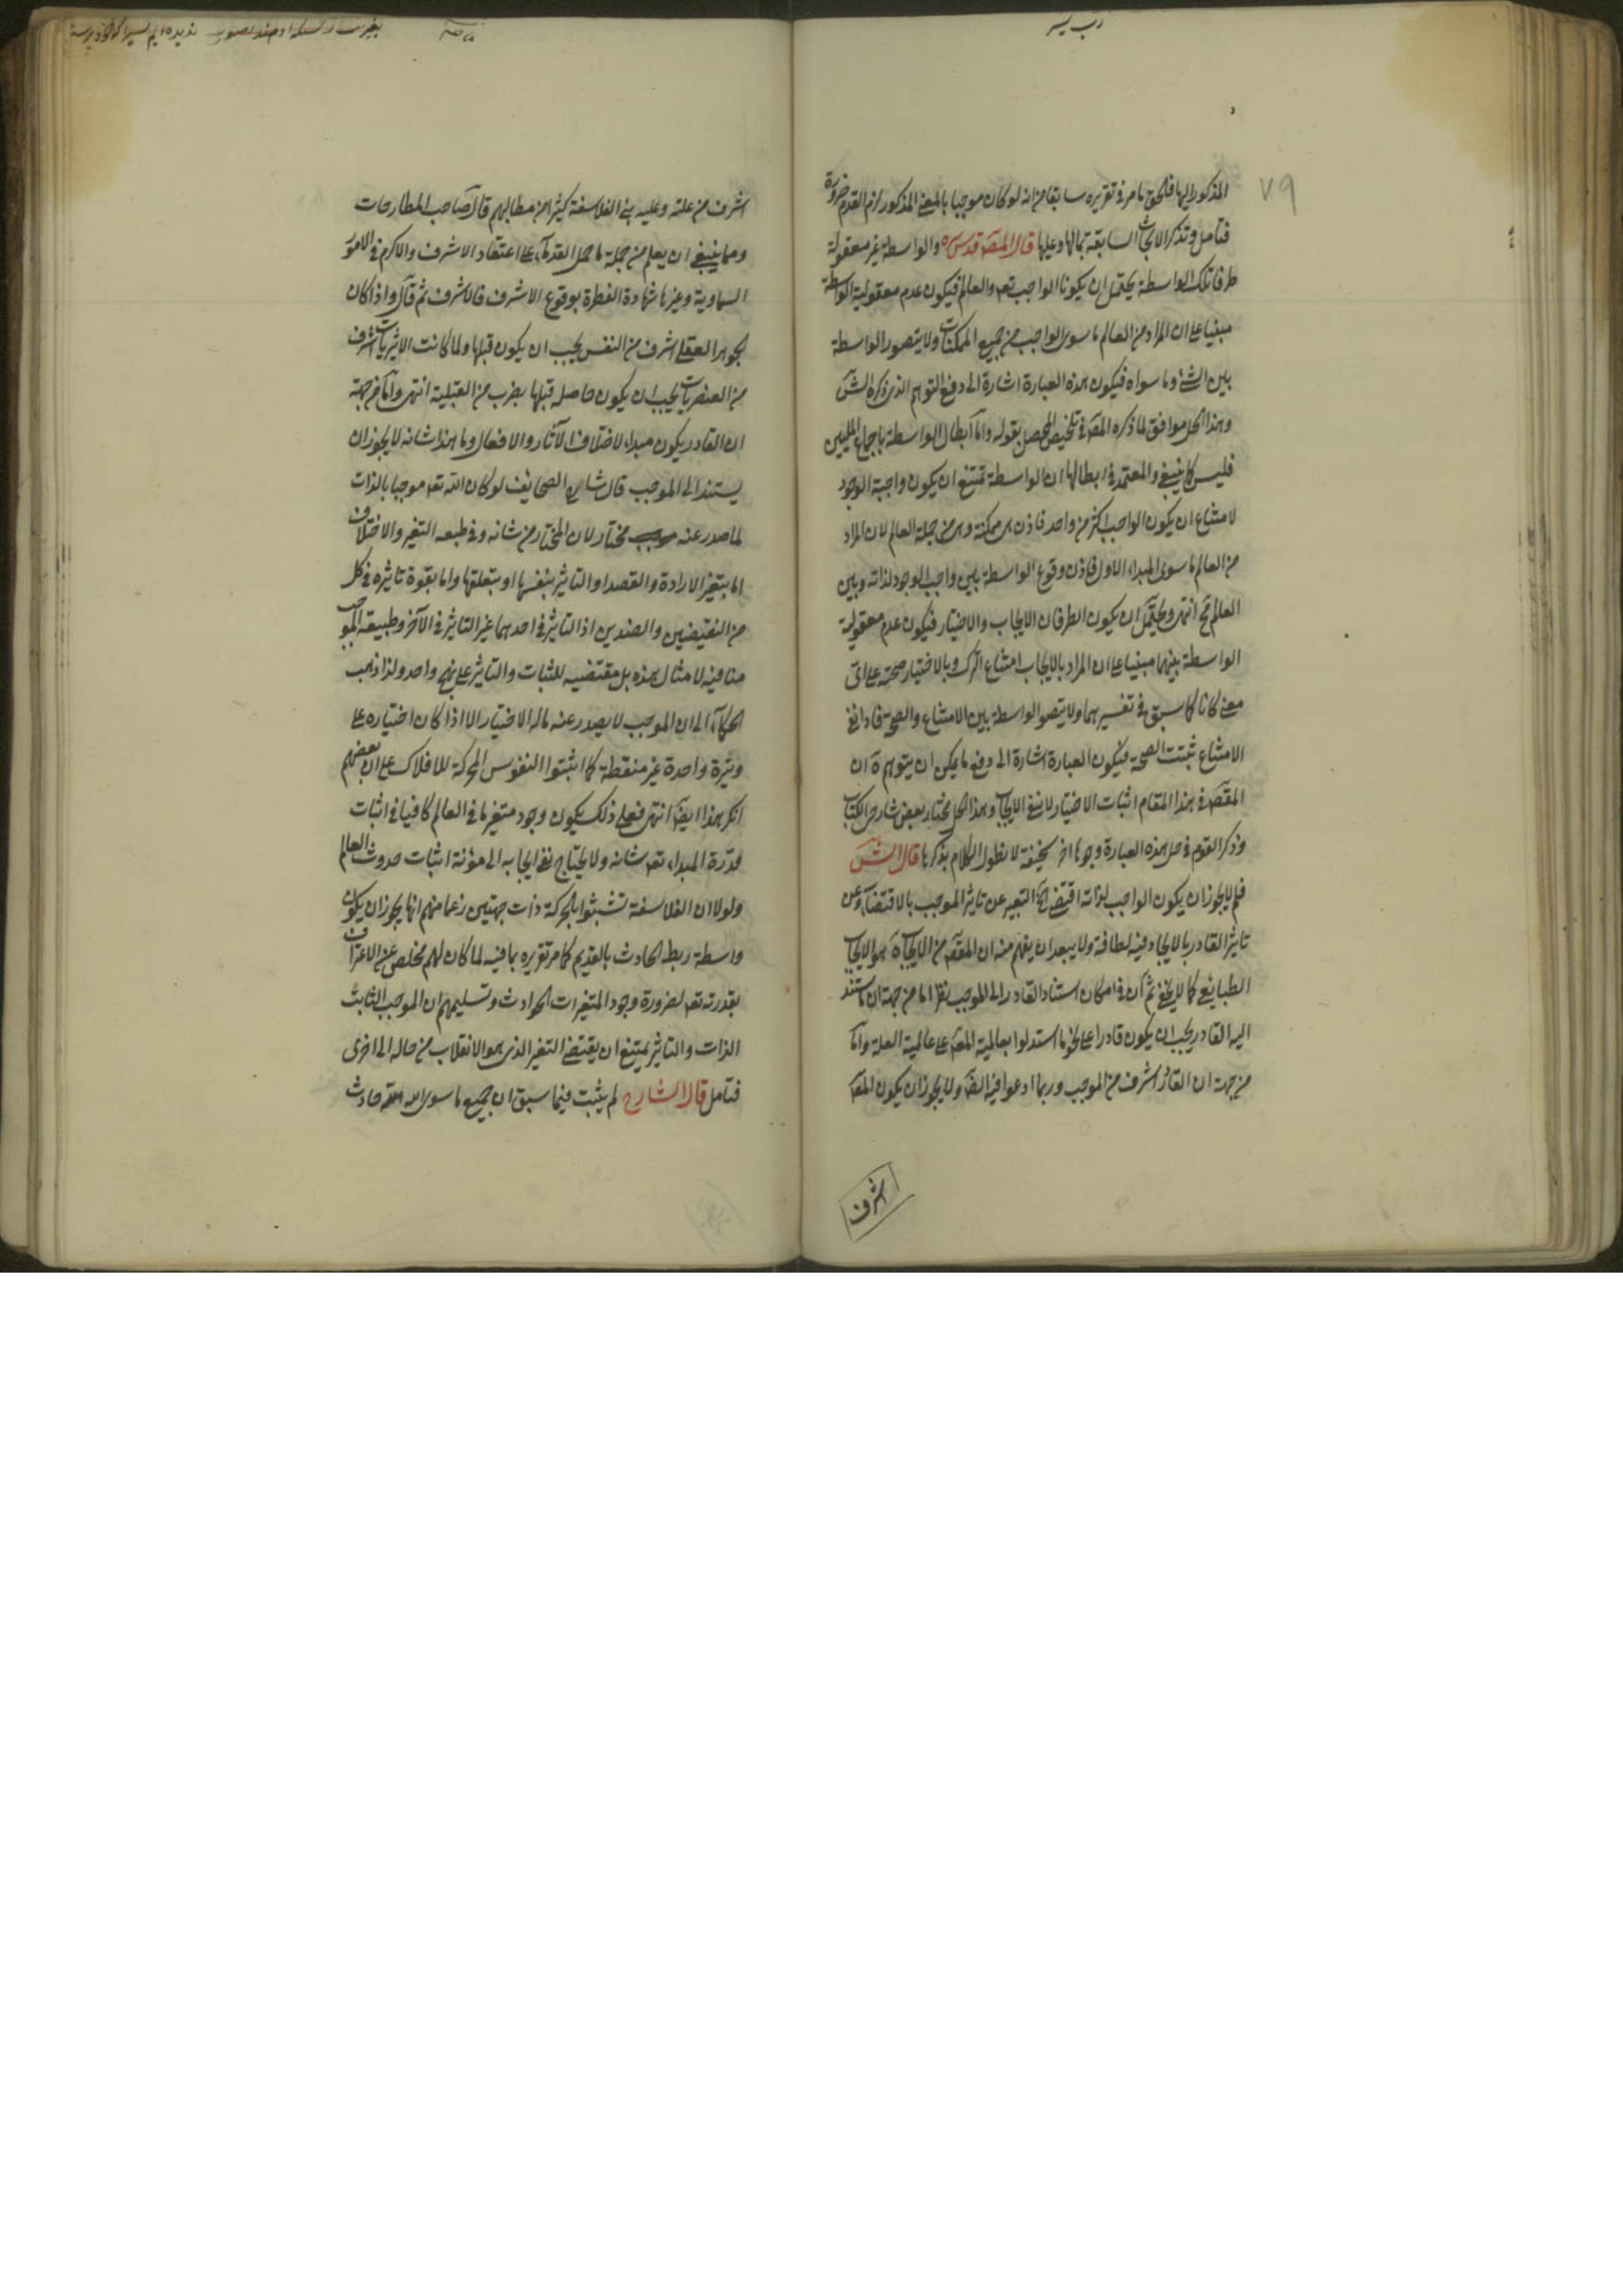 المذكور اليها فلحق ما مر في تقريره سابقا من انه لو كان موجبا بالمعنى المذكور لزم القدم ضرورة
فتامل وتذكر الابحاث السابقة بمالها وعليها قال المصَ قدس سره والواسطة غير معقولة
طرفا تلك الواسطة يحتمل ان يكونا الواجب تعـ والعالم فيكون عدم معقولية الواسطة
مبنيا على ان المراد من العالم ما سوى الواجب من جميع الممكنات ولا يتصور الواسطة
بين الشئ وما سواه فيكون هذه العبارة اشارة الى دفع التوهم الذي ذكره الشَ
وهذا الحل موافق لما ذكره المصَ في تلخيص المحصل بقوله واما ابطال الواسطة باجماع المليين
فليس كما ينبغي والمعتمد في ابطالها ان الواسطة تمتنع ان يكون واجبة الوجود
لامتناع ان يكون الواجب اكثر من واحد فاذن هي ممكنة وهي من جملة العالم لان المراد
من العالم ما سوى المبداء الاول فاذن وقوع الواسطة بين واجب الوجود لذاته وبين
العالم مح انتهى ويحتمل ان يكون الطرفان الايجاب والاختيار فيكون عدم معقولية
الواسطة بينهما مبنيا على ان المراد بالايجاب امتناع الترك وبالاختيار صحته على اى
معنى كانا كما سبق في تفسيرهما ولا يتصور الواسطة بين الامتناع والصحة فاذا نفى
الامتناع ثبتت الصحة فيكون العبارة اشارة الى دفع ما يمكن ان يتوهم ان
المقصَ في هذا المقام اثبات الاختيار لا نفي الايجاب وهذا الحل مختار بعض شارحي الكتاب
وذكر القوم في حل هذه العبارة وجوها اخر سخيفة لا نطول الكلام بذكرها قال الشَ
فلم لا يجوز ان يكون الواجب لذاته اقتضى التعبير عن تاثير الموجب بالاقتضاء وعن
تاثير القادر بالايجاد فيه لطافة ولا يبعد ان يفهم منه ان المقصَ من الايجاب هو الايجاب
الطبايعي كما لا يخفى ثم ان في امكان استناد القادر الى الموجب نظر اما من جهة ان ما يستند
اليه القادر يجب ان يكون قادرا على نحو ما استدلوا بعالمية المعلَ على عالمية العلة واما
من جهة ان القادر اشرف من الموجب وربما ادعوا فيه الضَ ولا يجوز ان يكون المعلَ
اشرف
٧٩
اشرف من علته وعليه بنى الفلاسفة كثيرا من مطالبهم قال صاحب المطارحات
ومما ينبغي ان يعلم من جملة ما حمل القدماء على اعتقاد الاشرف والاكرم في الامور
السماوية وغيرها شهادة الفطرة بوقوع الاشرف فالاشرف ثم قال واذا كان
الجوهر العقلي اشرف من النفس يجب ان يكون قبلها ولما كانت الاثيريات اشرف
من العنصريات يجب ان يكون حاصله قبلها بضرب من القبلية انتهى واما من جهة
ان القادر يكون مبداء لاختلاف الآثار والافعال وما هذا شانه لا يجوز ان
يستند الى الموجب قال شارح الصحايف لو كان الله تعـ موجبا بالذات
لما صدر عنه مختار لان المختار من شانه وفي طبعه التغير والاختلاف
اما بتغير الارادة والقصد او التاثير بنفسها او بتعلقها واما بقوة تاثيره في كل
من النقيضين والضدين اذ التاثير في احدهما غير التاثير في الآخر وطبيعة الموجب
منافية لامثال هذه بل مقتضيه للثبات والتاثير على نهج واحد ولذا ذهب
الحكماء الى ان الموجب لا يصدر عنه ماله الاختيار الا اذا كان اختياره على
وتيرة واحدة غير منقطة كما اثبتوا النفوس المحركة للافلاك على ان بعضهم
انكر هذا ايضَ انتهى فعلى ذلك يكون وجود متغير ما في العالم كافيا في اثبات
قدرة المبداء تعـ شانه ولا يحتاج نفي ايجابه الى مؤنة اثبات حدوث العالم
ولولا ان الفلاسفة تشبثوا بالحركة ذات جهتين زعما منهم انها يجوز ان يكون
واسطة ربط الحادث بالقديم كما مر تقريره بما فيه لما كان لهم مخلص عن الاعتراف
بقدرته تعـ لضرورة وجود المتغيرات الحوادث وتسليمهم ان الموجب الثابت
الذات والتاثير يمتنع ان يقتضى التغير الذي هو الانقلاب من حالة الى اخرى
فتامل قال الشارح لم يثبت فيما سبق ان جميع ما سوى الله تعـ حادث